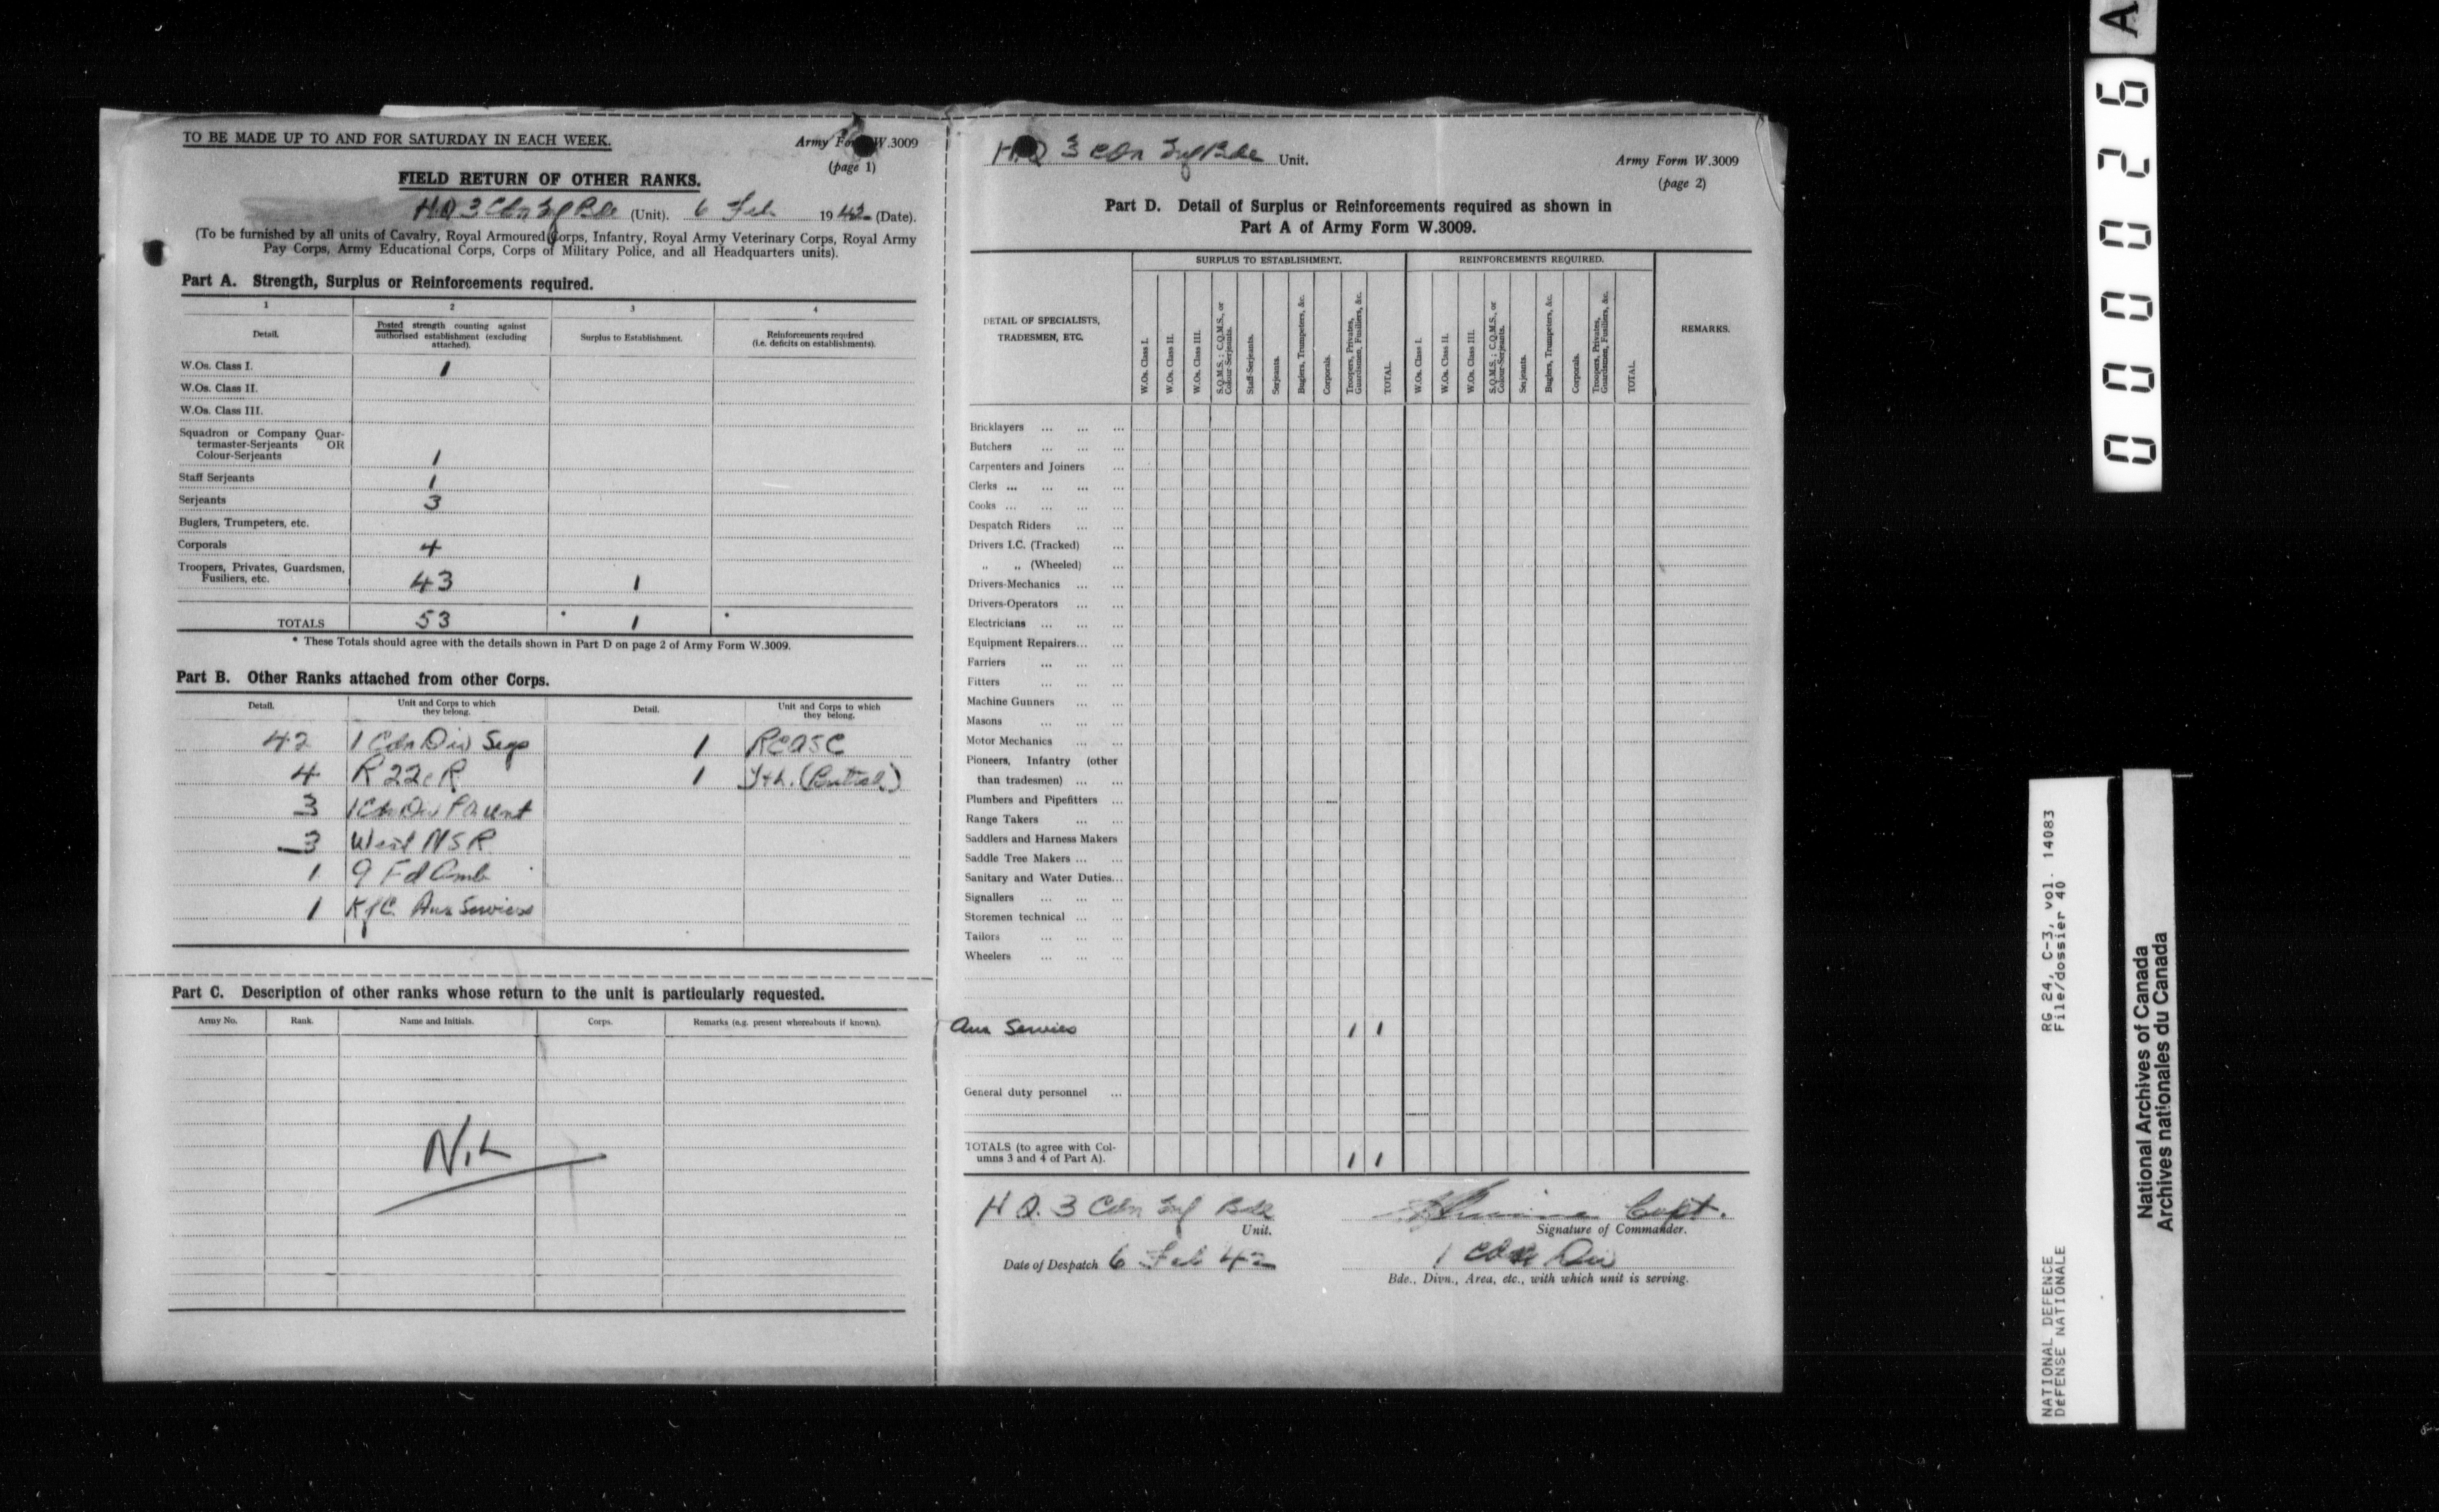 TO BE MADE UP TO AND FOR SATURDAY IN EACH WEEK.
Army Form W.3009
(page 1)
FIELD RETURN OF OTHER RANKS.
H.Q 3 Cdn Inf Bde (Unit). 6 Feb 1942 (Date).
(To be furnished by all units of Cavalry, Royal Armoured Corps, Infantry, Royal Army Veterinary Corps, Royal Army
Pay Corps, Army Educational Corps, Corps of Military Police, and all Headquarters units).
Part A. Strength, Surplus or Reinforcements required.
1 2 3 4
Detail.
Posted strength counting against
authorised establishment (excluding
attached).
Surplus to Establishment.
Reinforcements required
(i.e. deficits on establishments).
W.Os. Class I. 1
W.Os. Class II.
W.Os. Class III.
Squadron or Company Quar-
termaster-Serjeants OR
Colour-Serjeants 1
Staff Serjeants 1
Serjeants 3
Buglers, Trumpeters, etc.
Corporals 4
Troopers, Privates, Guardsmen,
Fusiliers, etc. 43 1
TOTALS 53 * 1 *
* These Totals should agree with the details shown in Part D on page 2 of Army Form W.3009.
Part B. Other Ranks attached from other Corps.
Detail.
Unit and Corps to which
they belong.
Detail.
Unit and Corps to which
they belong.
42 1 Cdn Div Sigs 1 RCASC
4 R 22e R 1
3 1 Cdn Div
3 West NSR
1 9 Fd Amb
1 K of C. Aux Services
Part C. Description of other ranks whose return to the unit is particularly requested.
Army No. Rank. Name and Initials. Corps. Remarks (e.g. present whereabouts if known).
NIL
H.Q 3 Cdn Inf Bde Unit.
Army Form W.3009
(page 2)
Part D. Detail of Surplus or Reinforcements required as shown in
Part A of Army Form W.3009.
DETAIL OF SPECIALISTS,
TRADESMEN, ETC.
SURPLUS TO ESTABLISHMENT.
W.Os. Class I.
W.Os. Class II.
W.Os. Class III.
S.Q.M.S.; C.Q.M.S., or
Colour-Serjeants.
Staff-Serjeants.
Serjeants.
Buglers, Trumpeters, &c.
Corporals.
Troopers, Privates,
Guardsmen, Fusiliers, &c.
TOTAL.
REINFORCEMENTS REQUIRED.
W.Os. Class I.
W.Os. Class II.
W.Os. Class III.
S.Q.M.S.; C.Q.M.S., or
Colour-Serjeants.
Serjeants.
Buglers, Trumpeters, &c.
Corporals.
Troopers, Privates,
Guardsmen, Fusiliers, &c.
TOTAL.
REMARKS.
Bricklayers ... ... ...
Butchers ... ... ...
Carpenters and Joiners ...
Clerks ... ... ... ...
Cooks ... ... ... ...
Despatch Riders ... ...
Drivers I.C. (Tracked) ...
„ „ (Wheeled) ...
Drivers-Mechanics ... ...
Drivers-Operators ... ...
Electricians ... ... ...
Equipment Repairers... ...
Farriers ... ... ...
Fitters ... ... ...
Machine Gunners ... ...
Masons ... ... ...
Motor Mechanics ... ...
Pioneers, Infantry (other
than tradesmen) ... ...
Plumbers and Pipefitters ...
Range Takers ... ...
Saddlers and Harness Makers
Saddle Tree Makers ... ...
Sanitary and Water Duties...
Signallers ... ... ...
Storemen technical ... ...
Tailors ... ... ...
Wheelers ... ... ...
Aux Services 1 1
General duty personnel ...
TOTALS (to agree with Col-
umns 3 and 4 of Part A). 1 1
H Q. 3 Cdn Inf Bde
Unit.
Capt.
Signature of Commander.
Date of Despatch 6 Feb 42
1 Cdn Div
Bde., Divn., Area, etc., with which unit is serving.
000026 A
NATIONAL DEFENCE RG 24, C-3, vol. 14083
DEFENSE NATIONALE File/dossier 40
National Archives of Canada
Archives nationales du Canada